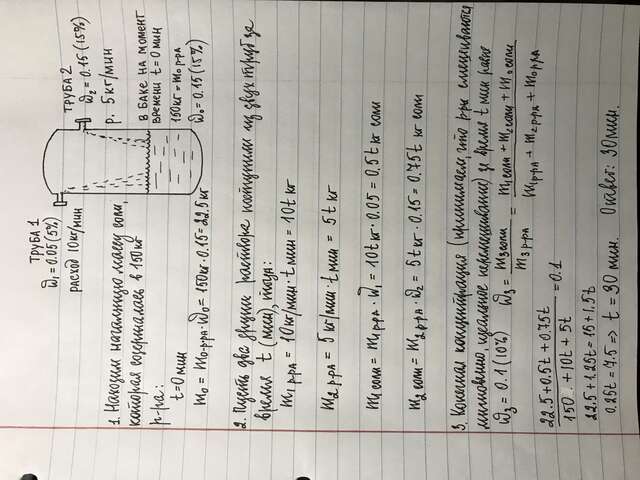 ТРУБА 1
ω₁ = 0.05 (5%)
расход 10 кг/мин
ТРУБА 2
ω₂ = 0.15 (15%)
р. 5 кг/мин
В БАКЕ НА МОМЕНТ
ВРЕМЕНИ t=0 мин
150кг = m₀ р-ра
ω₀ = 0.15 (15%)
1. Находим начальную массу соли,
которая содержалась в 150кг
р-ра:
t=0 мин
m₀ = m₀ р-ра · ω₀ = 150кг · 0.15 = 22.5 кг
2. Пусть два других раствора поступили из двух труб за
время t (мин), тогда:
m₁ р-ра = 10кг/мин · t мин = 10t кг
m₂ р-ра = 5 кг/мин · t мин = 5t кг
m₁ соли = m₁ р-ра · ω₁ = 10t кг · 0.05 = 0.5t кг соли
m₂ соли = m₂ р-ра · ω₂ = 5t кг · 0.15 = 0.75t кг соли
3. Конечная концентрация (принимаем, что р-ры смешиваются
мгновенно, идеальное перемешивание) за время t мин равна
ω₃ = 0.1 (10%) ω₃ = m₃ соли / m₃ р-ра = m₁ соли + m₂ соли + m₀ соли / m₁ р-ра + m₂ р-ра + m₀ р-ра
22.5 + 0.5t + 0.75t / 150 + 10t + 5t = 0.1
22.5 + 1.25t = 15 + 1.5t
0.25t = 7.5 => t = 30 мин. Ответ: 30 мин.